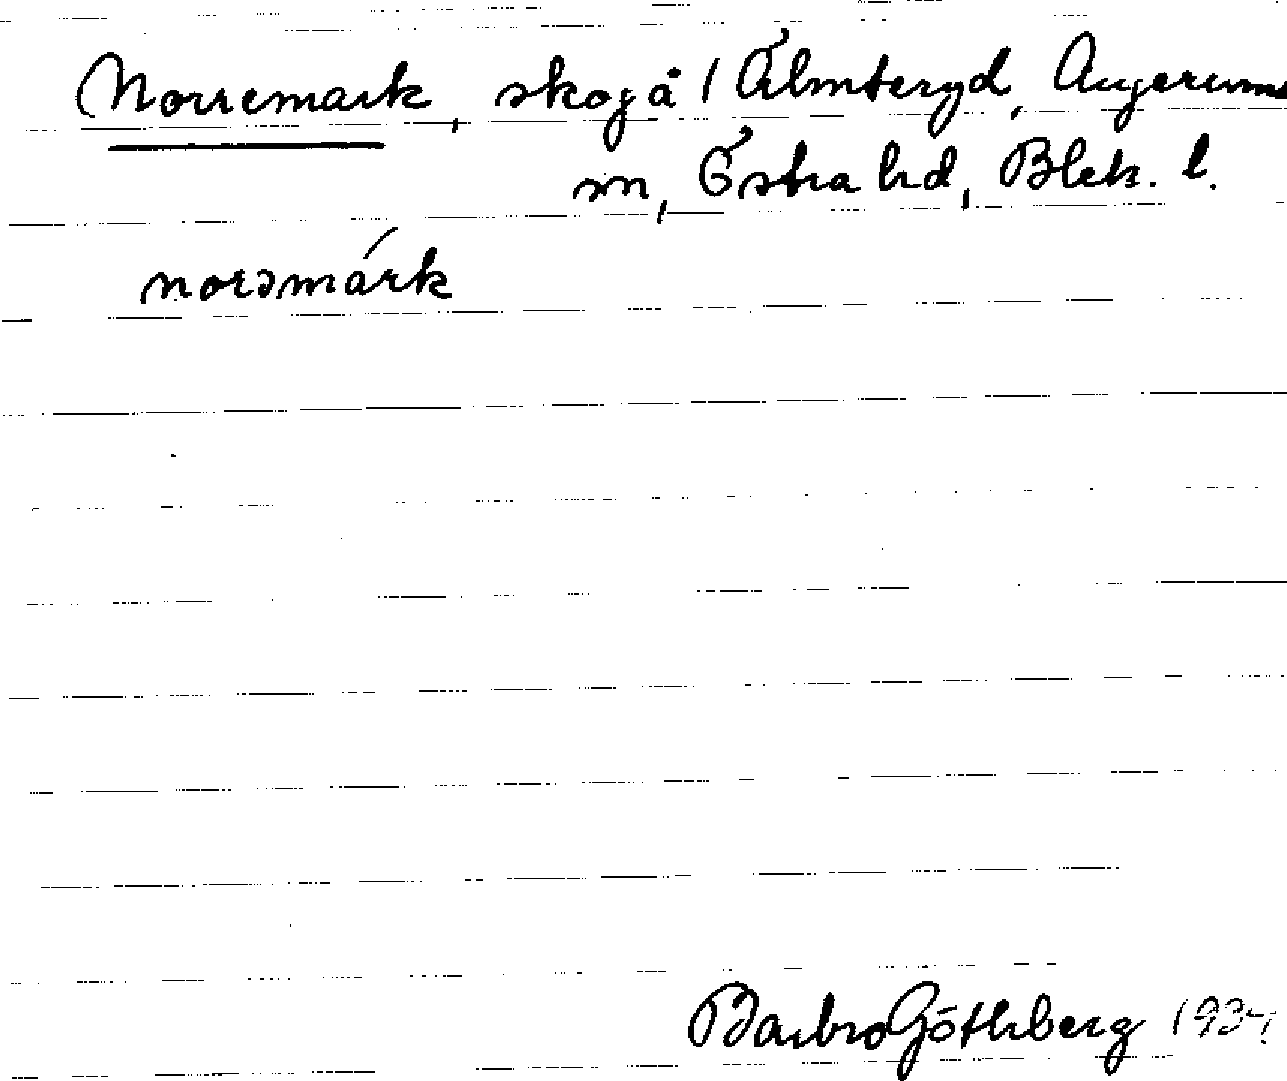 Norremark, skog å / Älmteryd, Augerums
sn, Östra hd, Blek. l.
norəmárk
Barbro Göthberg 1934